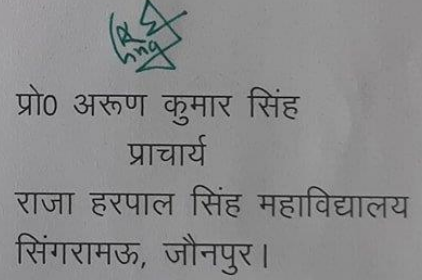 प्रो0 अरूण कुमार सिंह
प्राचार्य
राजा हरपाल सिंह महाविद्यालय
सिंगरामऊ, जौनपुर।